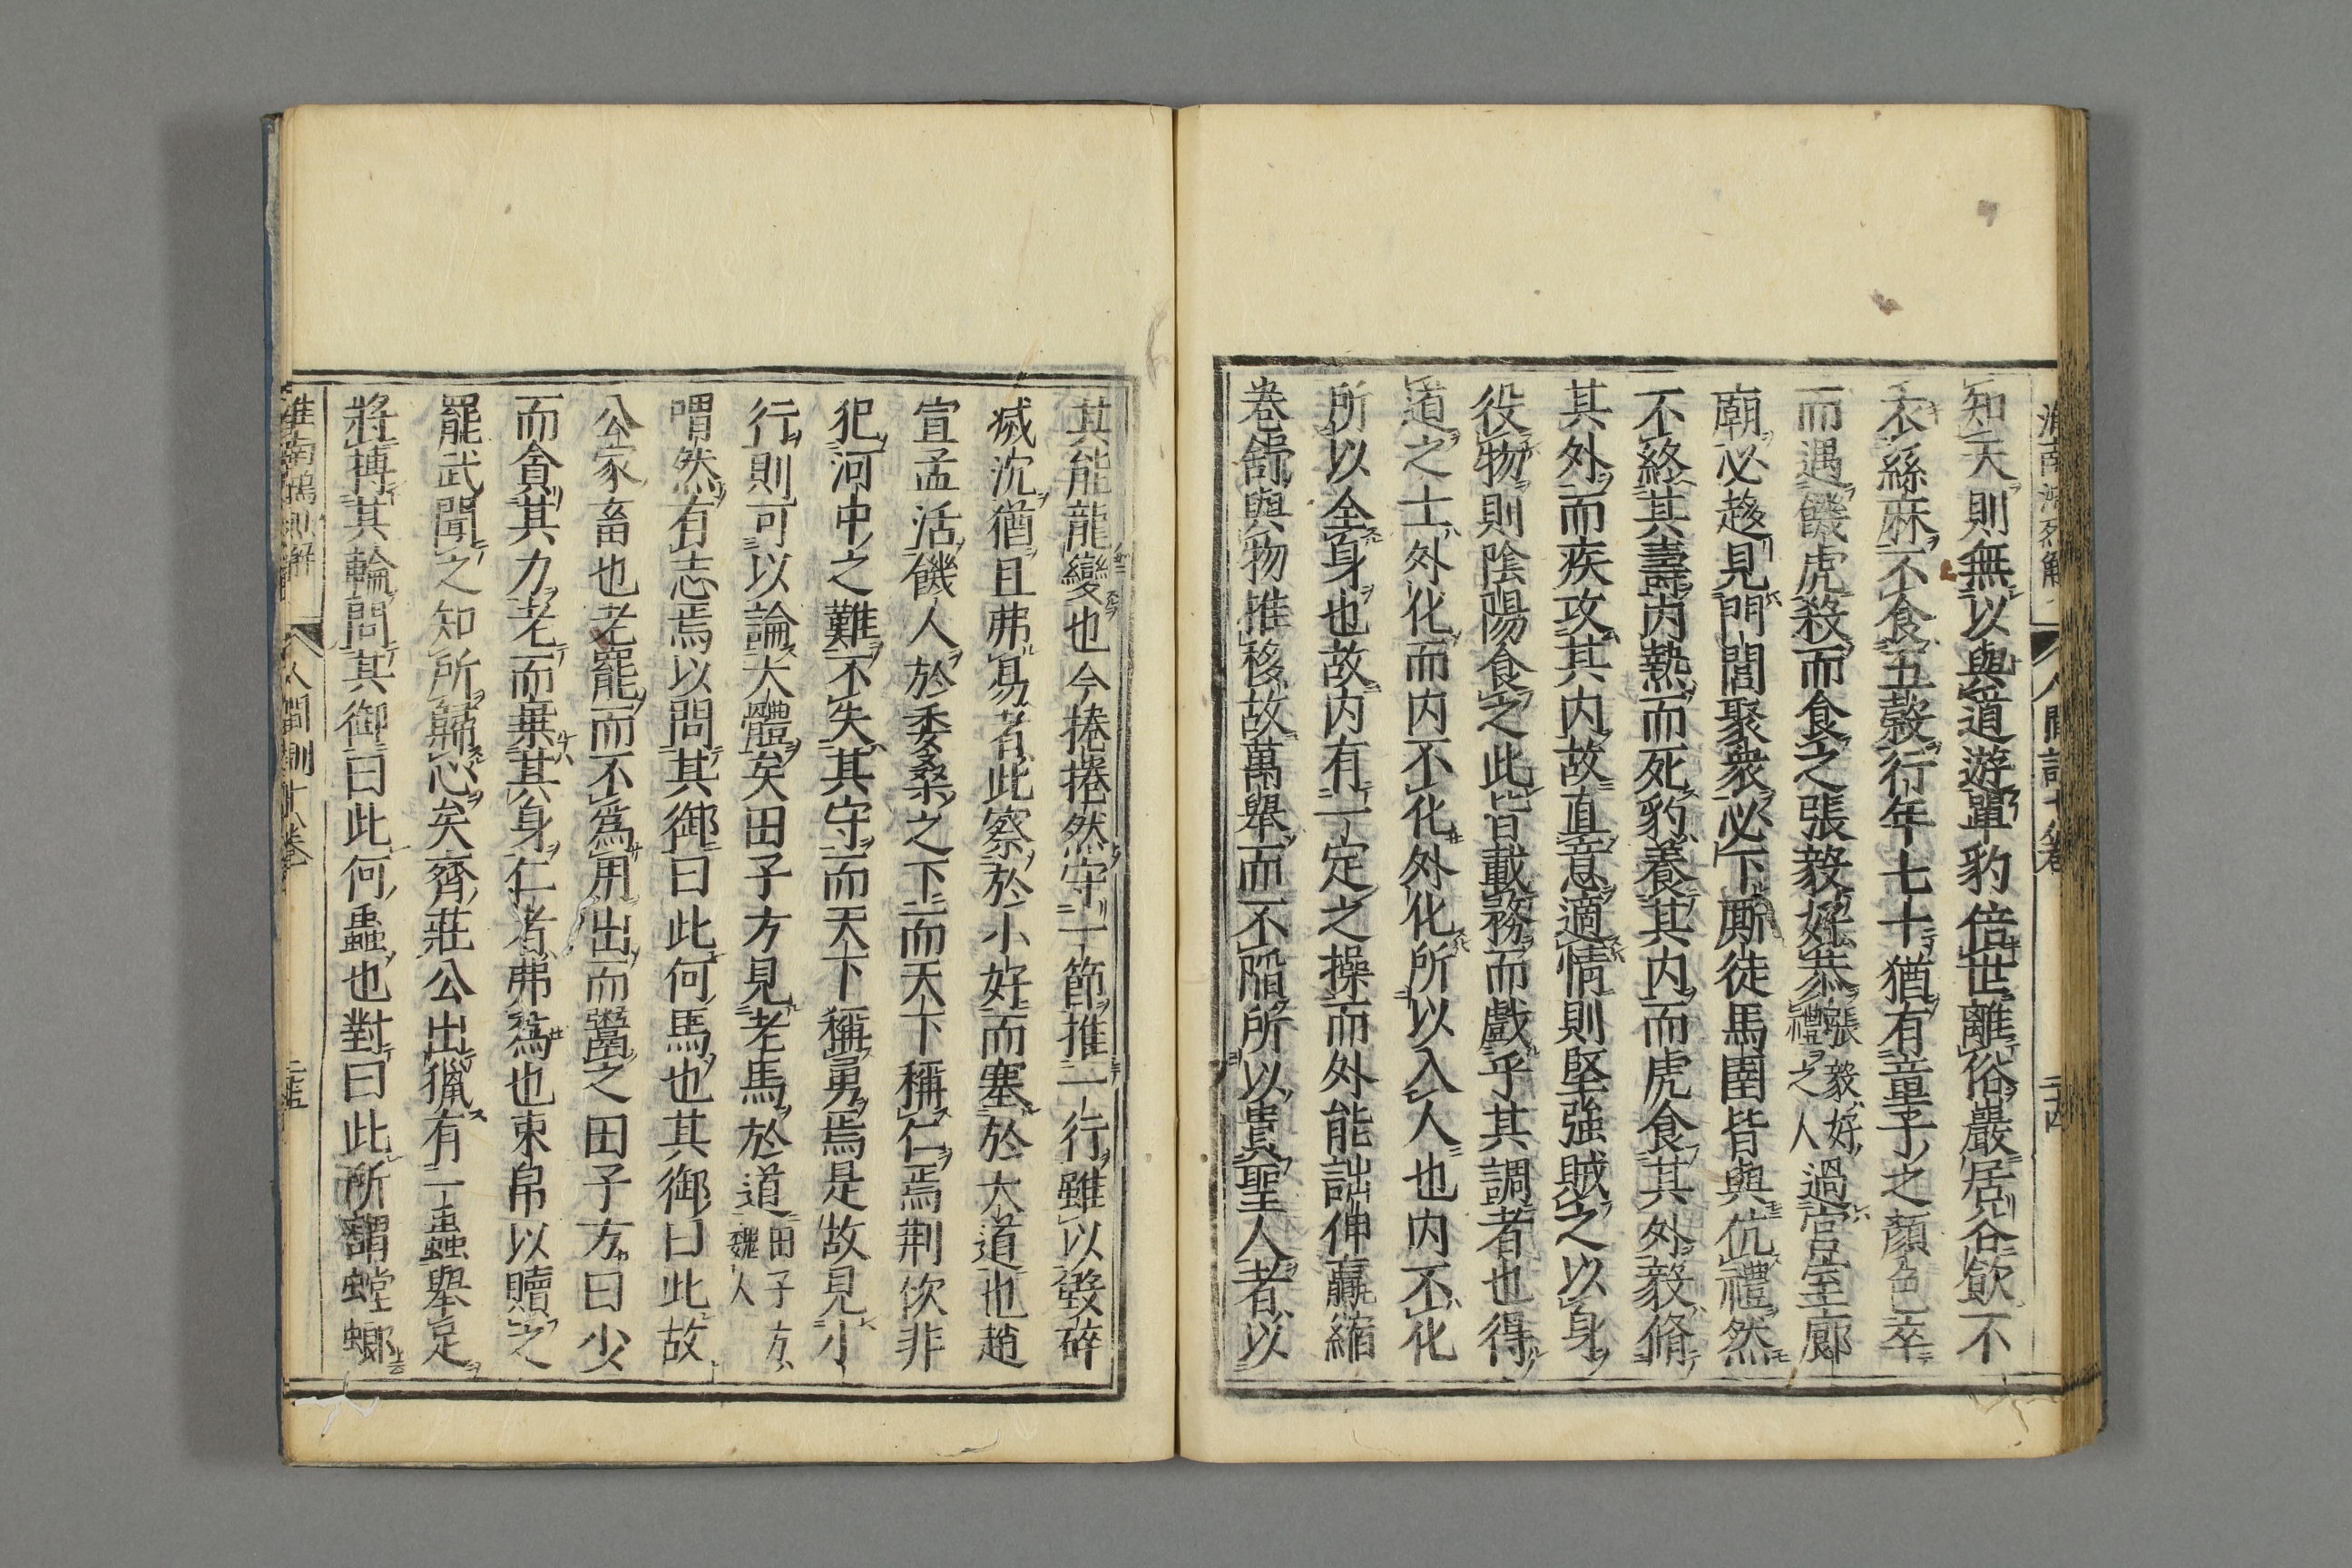 知天則無以與道遊單豹倍世離俗巖居谷飲不
衣絲麻不食五穀行年七十猶有童子之顏色卒
而遇饑虎殺而食之張毅好恭張毅好禮之人過宮室廊
廟必趨見門閭聚衆必下厮徒馬圉皆與伉禮然
不終其壽内熱而死豹養其内而虎食其外毅脩
其外而疾攻其内故直意適情則堅強賊之以身
役物則陰陽食之此皆載務而戲乎其調者也得
道之士外化而内不化外化所以入人也内不化
所以全身也故内有一定之操而外能詘伸贏縮
卷舒與物推移故萬舉而不陷所以貴聖人者以
其能龍變也今捲捲然守一節推一行雖以毀碎
滅沉猶且弗易者此察於小好而塞於大道也趙
宣孟活饑人於委桑之下而天下稱仁焉荆佽非
犯河中之難不失其守而天下稱勇焉是故見小
行則可以論大體矣田子方見老馬於道田子方魏人
喟然有志焉以問其御曰此何馬也其御曰此故
公家畜也老罷而不爲用出而鬻之田子方曰少
而貪其力老而棄其身仁者弗爲也束帛以贖之
罷武聞之知所歸心矣齊莊公出獵有一蟲舉足
將搏其輪問其御曰此何蟲也對曰此所謂螳螂
淮南鴻烈解 人間訓十八卷 二十五